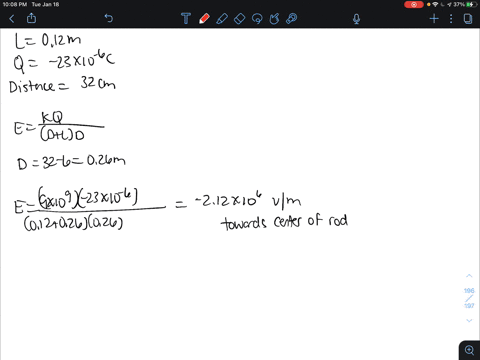 10:08 PM Tue Jan 18
37%
L = 0.12m
Q = -23×10⁻⁶C
Distance = 32 cm
E = KQ / (D+L)D
D = 32-6 = 0.26m
E = (9×10⁹)(-23×10⁻⁶) / (0.12+0.26)(0.26) = -2.12×10⁶ V/m
towards center of rod
196 / 197